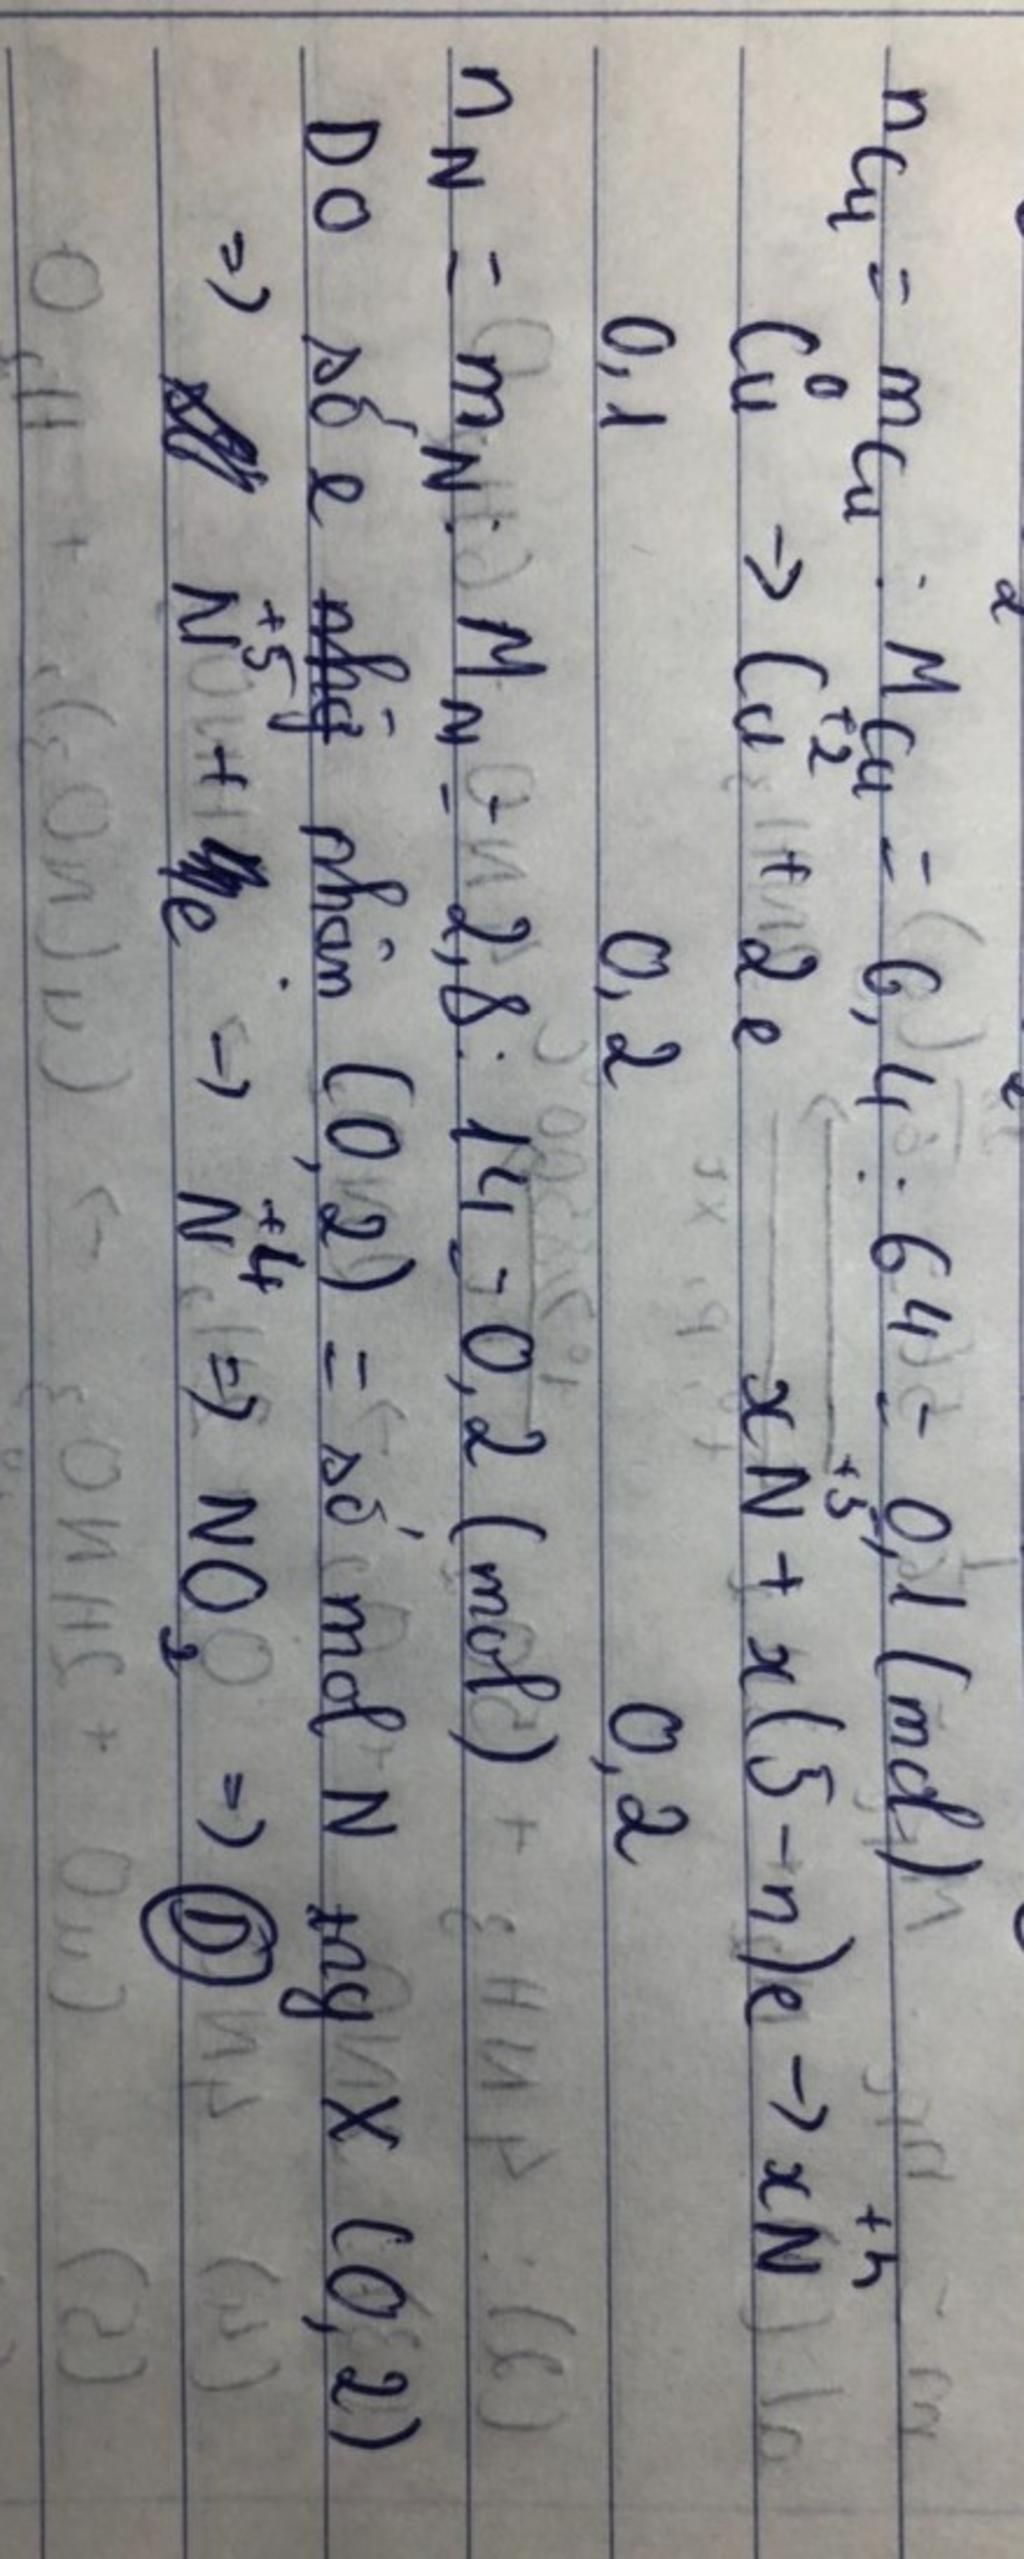 n Cu = m Cu : M Cu = 6,4 : 64 = 0,1 (mol)
Cu⁰ → Cu⁺² + 2e xN⁺⁵ + x(5-n)e → xN⁺ⁿ
0,1 0,2 0,2
n N = m N : M N = 2,8 : 14 = 0,2 (mol)
Do số e nhận (0,2) = số mol N trg X (0,2)
=) N⁺⁵ + e → N⁺⁴ =) NO₂ =) D